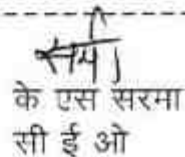 के एस सरमा
सी ई ओ